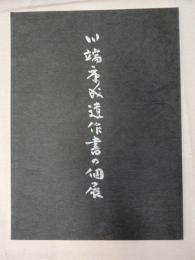 川端康成遺作書の個展